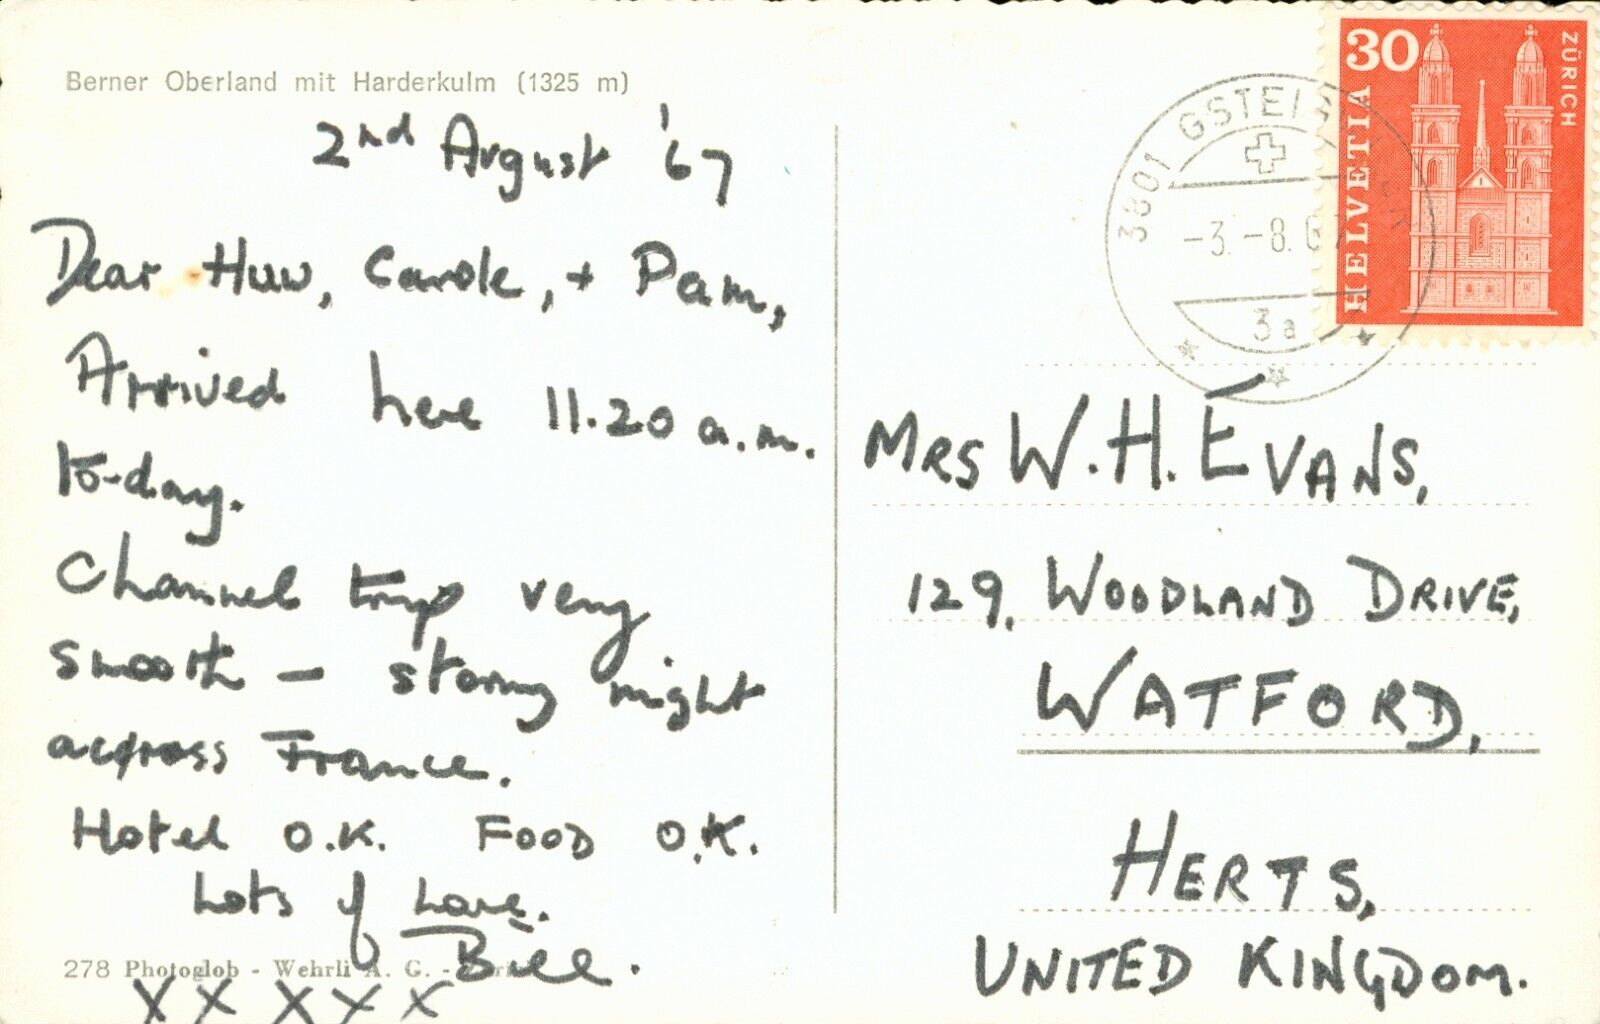 Berner Oberland mit Harderkulm (1325 m)
2nd August '67
Dear Huw, Carole, + Pam,
Arrived here 11.20 a.m.
to-day.
Channel trip very
smooth — stormy night
across France.
Hotel O.K. FOOD O.K.
Lots of Love.
Bill.
278 Photoglob - Wehrli A. G. -
X X X X X
30
ZÜRICH
HELVETIA
3801 GSTEI
-3.-8.67
3a
MRS W.H. EVANS,
129, WOODLAND DRIVE,
WATFORD,
HERTS,
UNITED KINGDOM.